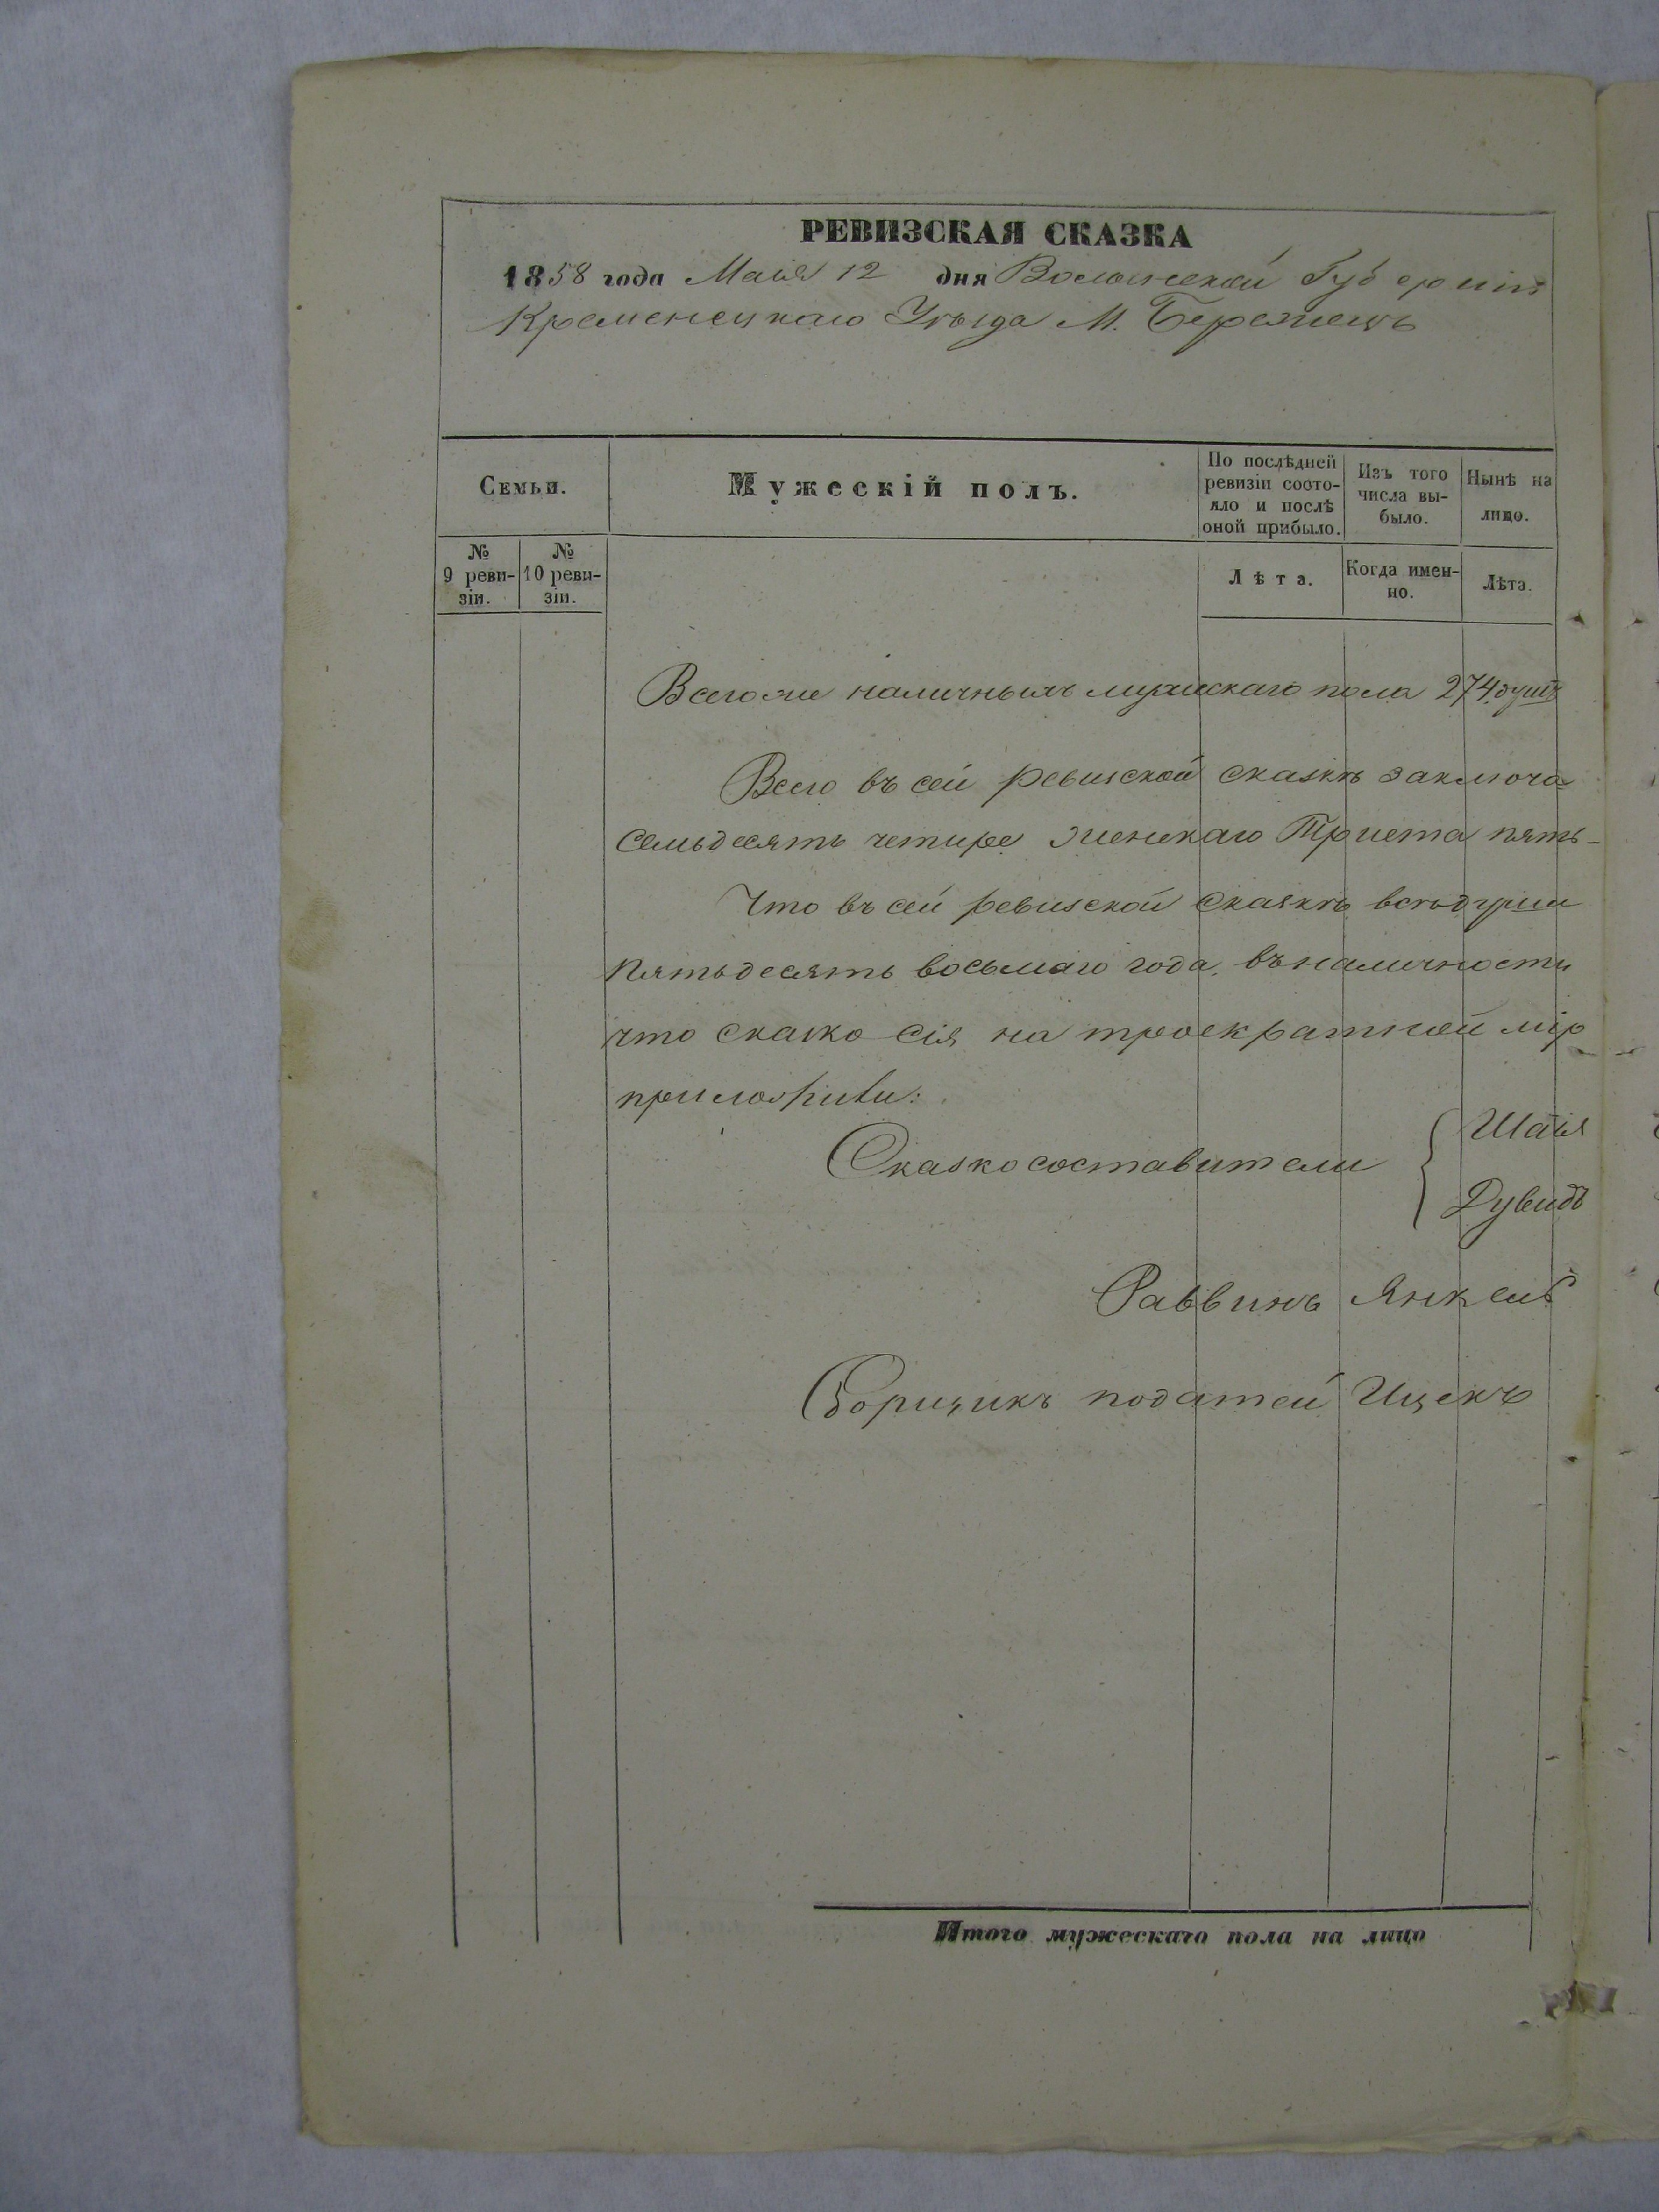 РЕВИЗСКАЯ СКАЗКА
1858 года Маія 12 дня Волынской Губерніи
Кременецкаго Уѣзда М. Бережецъ
Семьи.
Мужескій полъ.
По послѣдней ревизіи состо-
яло и послѣ оной прибыло.
Изъ того числа вы-
было.
Нынѣ на лицо.
№ 9 реви-
зіи.
№ 10 реви-
зіи.
Лѣта.
Когда имен-
но.
Лѣта.
Всего же наличныхъ мужескаго пола 274 душъ
Всего въ сей ревизской сказкѣ заключа-
семьдесять четире женскаго Триста пять-
Что въ сей ревизской сказкѣ всѣ души
Пятьдесять восьмаго года, въ наличности
что сказка сія на троекратной мір
приложили:
Сказкосоставители { Шаія
Дувидъ
Раввинъ Янкель
Сборщикъ податей Ицекъ
Итого мужескаго пола на лицо